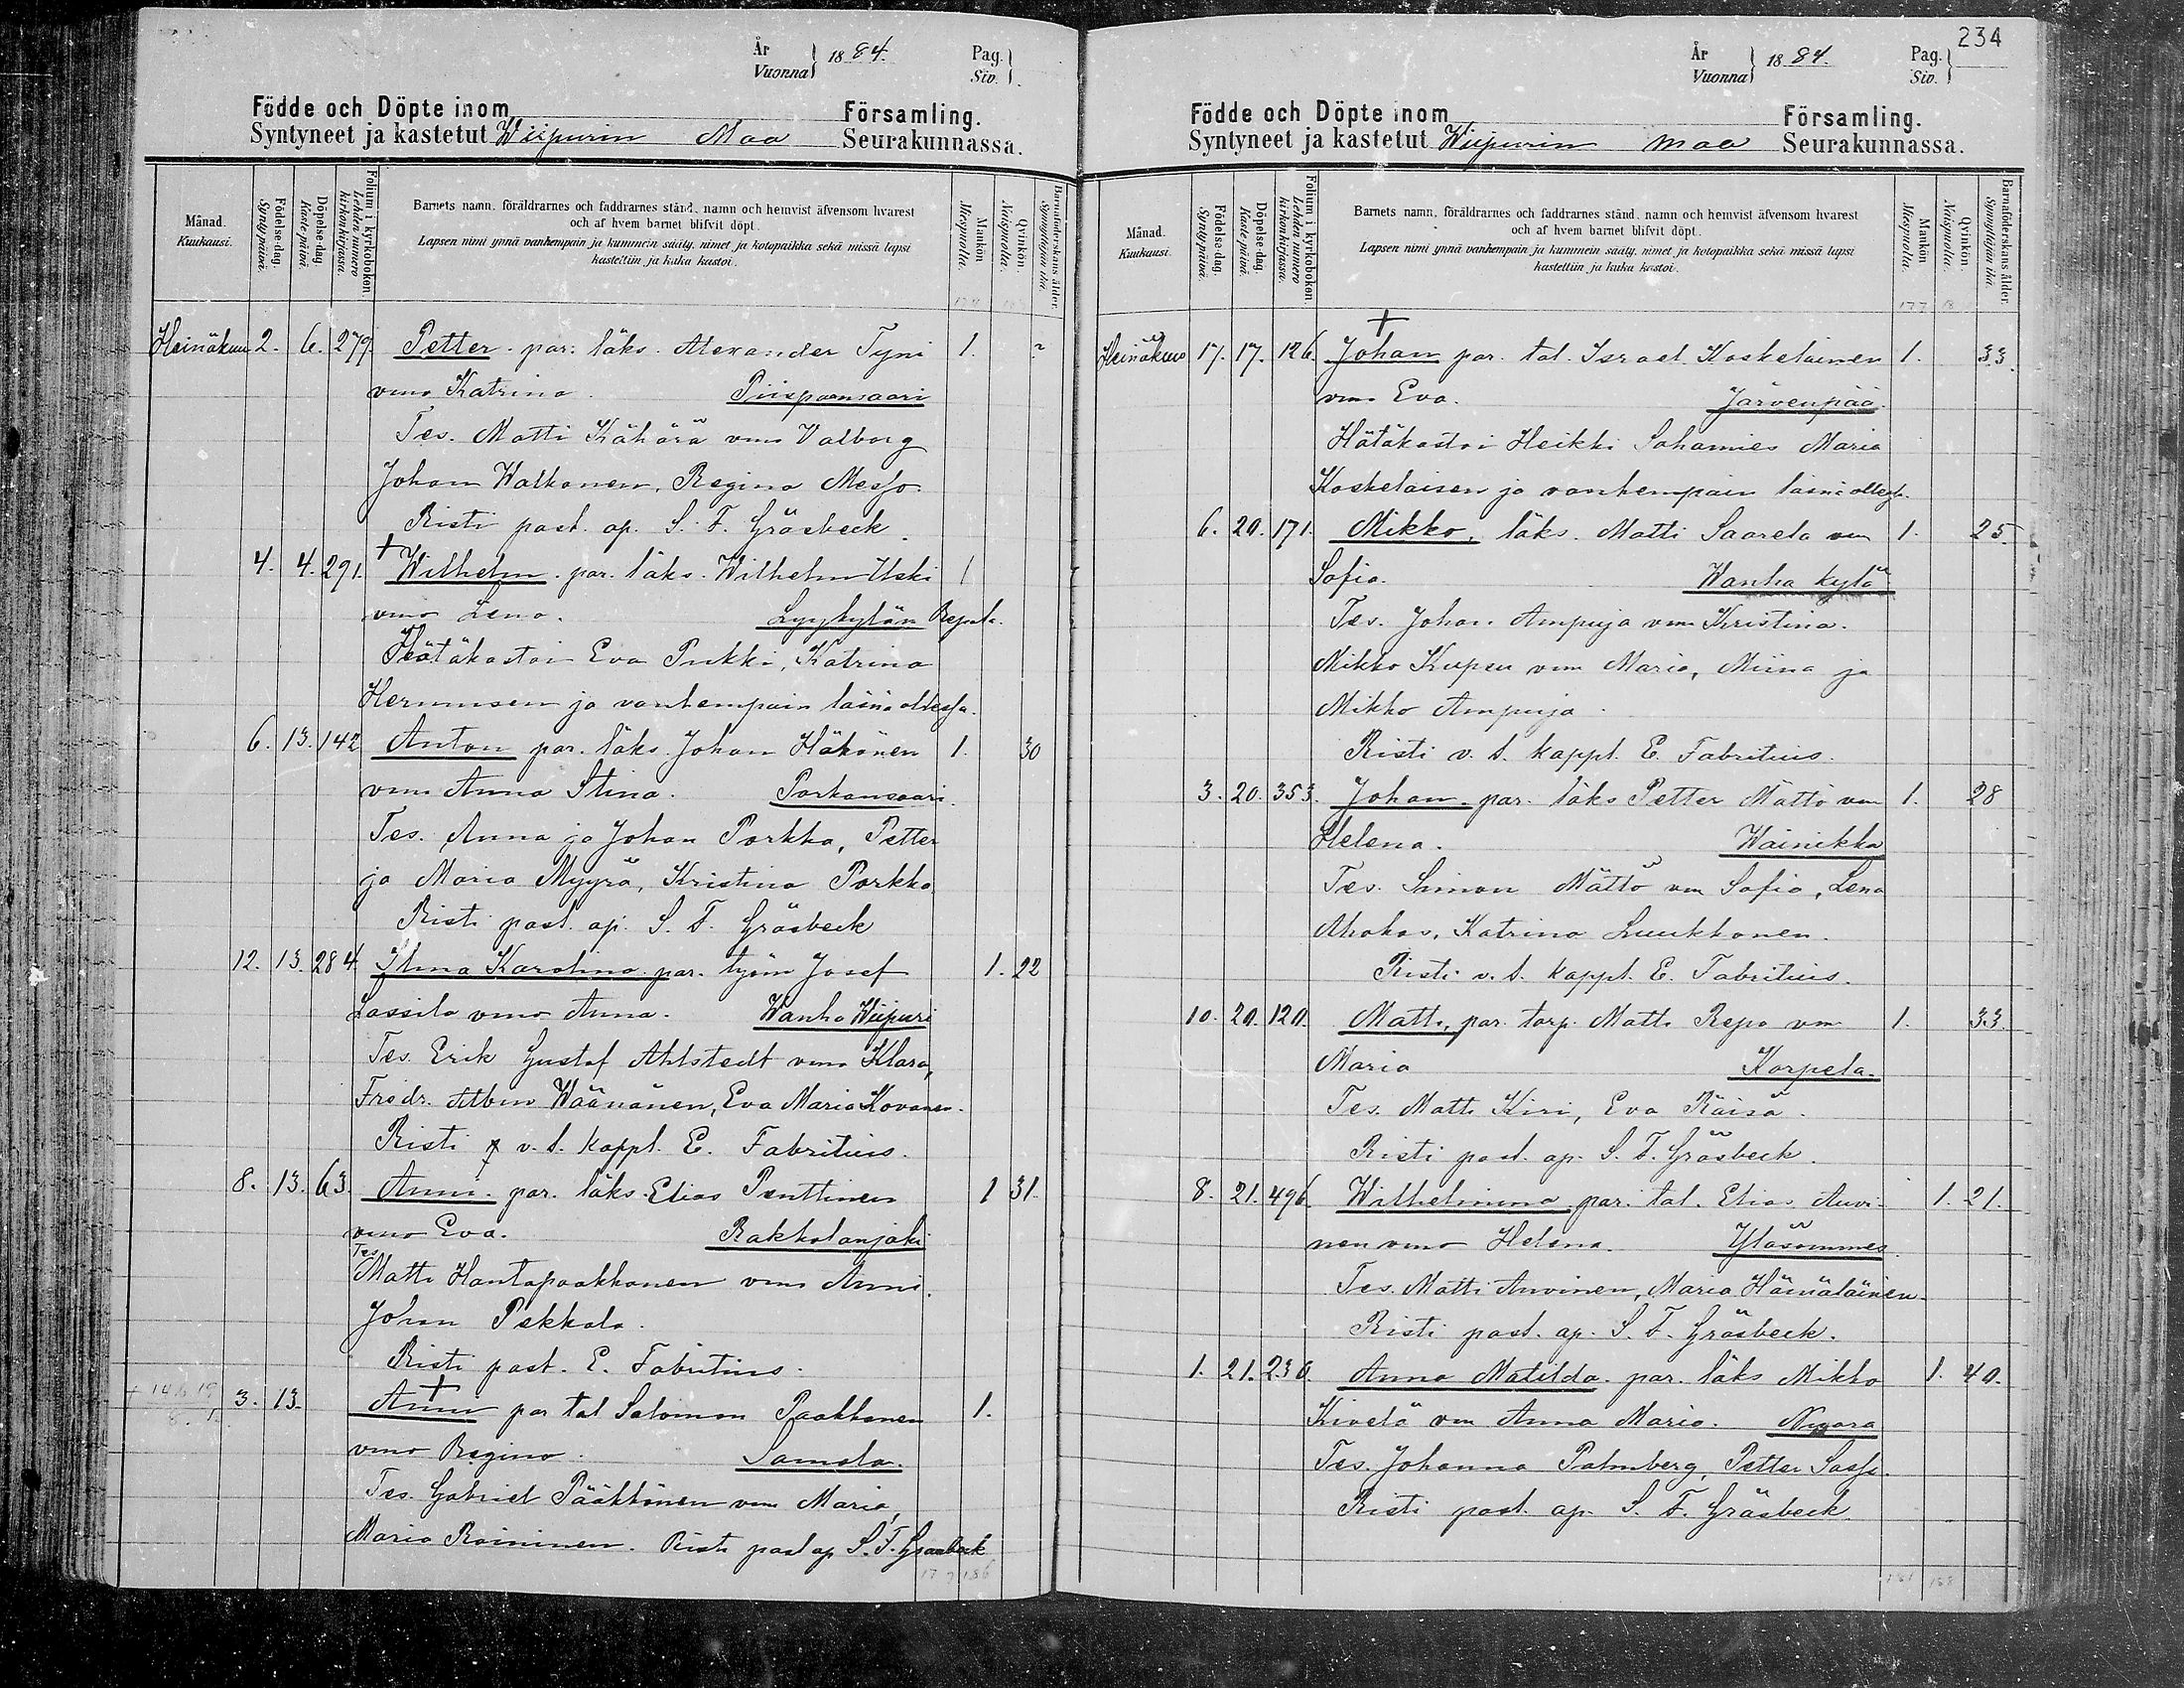 År
Vuonna } 1884. Pag.
Siv.
Födde och Döpte inom Församling.
Syntyneet ja kastetut Wiipurin Maa Seurakunnassa.
Månad.
Kuukausi.
Födelse-dag.
Syntypäivä.
Döpelse-dag
Kaste päivä.
Folium i kyrkobokon.
Lehden numero
kirkonkirjassa.
Barnets namn, föräldrarnes och faddrarnes stånd, namn och hemvist äfvensom hvarest
och af hvem barnet blifvit döpt.
Lapsen nimi ynnä vanhempain ja kummein sääty, nimet ja kotopaikka sekä missä lapsi
kastettiin ja kuka kastoi.
Mankön
Miespuolia.
Qvinkön.
Naispuolia.
Barnaföderskans ålder.
Synnyttäjän ikä.
Heinäkuu 2. 6. 279. Petter par. läks. Alexander Tyni 1. ?
vmo Katrina. Piispansaari
Tes. Matti Kähärä vmo Valborg
Johan Walkonen, Regina Messo.
Risti past. ap. S. F. Gräsbeck.
4. 4. 291. + Wilhelm par. läks. Wilhelm Uski 1
vmo Lena. Lyykylän Repola.
Hätäkastoi Eva Pukki, Katrina
Hernunsen ja vanhempain läsnä ollessa.
6. 13. 142 Anton par. läks. Johan Häkönen 1. 30
vmo Anna Stina. Porkansaari.
Tes. Anna ja Johan Porkka, Petter
ja Maria Myyrä, Kristina Porkka
Risti past. ap. S. F. Gräsbeck
12. 13. 284 Ilma Karolina par. työm Josef 1. 22
Lassila vmo Anna. Wanha Wiipuri
Tes. Erik Gustaf Ahlstedt vmo Klara,
Fredr. Albin Wäänänen, Eva Maria Kovanen.
Risti v. t. kappl. E. Fabritius.
8. 13. 63. Anni par. läks. Elias Penttinen 1 31.
vmo Eva. Rakkolanjoki
Tes Matti Hantapaakkonen vmo Anni.
Johan Pekkala.
Risti past. E. Fabritius.
3. 13. + Anni par tal Salomon Paakkonen 1.
vmo Regina. Samola.
Tes. Gabriel Pääkkönen vmo Maria,
Maria Roininen. Risti past ap S. F. Gräsbeck
234
År
Vuonna } 1884. Pag.
Siv.
Födde och Döpte inom Församling.
Syntyneet ja kastetut Wiipurin maa Seurakunnassa.
Månad.
Kuukausi.
Födelse-dag.
Syntypäivä.
Döpelse-dag.
Kaste päivä.
Folium i kyrkobokon.
Lehden numero
kirkonkirjassa.
Barnets namn, föräldrarnes och faddrarnes stånd, namn och hemvist äfvensom hvarest
och af hvem barnet blifvit döpt.
Lapsen nimi ynnä vanhempain ja kummein sääty, nimet ja kotopaikka sekä missä lapsi
kastettiin ja kuka kastoi.
Mankön
Miespuolia.
Qvinkön.
Naispuolia.
Barnaföderskans ålder.
Synnyttäjän ikä.
177
Heinäkuu 17. 17. 126. + Johan par. tal. Israel Koskelainen 1. 33.
vmo Eva. Järvenpää.
Hätäkastoi Heikki Sahamies Maria
Koskelaisen ja vanhempain läsnä ollessa.
6. 20. 171. Mikko, läks. Matti Saarela vm 1. 25.
Sofia. Wanha kylä
Tes. Johan Ampuja vmo Kristina.
Mikko Kupsu vm Maria, Miina ja
Mikko Ampuja.
Risti v. t. kappl. E. Fabritius.
3. 20. 353. Johan par. läks Petter Mättö vm 1. 28
Helena. Wainikka
Tes. Simon Mättö vm Sofia, Lena
Ahokas, Katrina Luukkonen.
Risti v. t. kappl. E. Fabritius.
10. 20. 120. Matti, par. torp. Matti Repo vm 1. 33.
Maria Korpela.
Tes. Matti Kiri, Eva Räisä.
Risti past. ap. S. F. Gräsbeck.
8. 21. 496. Wilhelmina par. tal. Elias Auvi- 1. 21.
nen vmo Helena. Yläsommee.
Tes. Matti Auvinen, Maria Hämäläinen.
Risti past. ap. S. F. Gräsbeck.
1. 21. 230. Anna Matilda par. läks Mikko 1. 40.
Kivelä vm Anna Maria. Nuora
Tes. Johanna Palmberg, Petter Sasse.
Risti past. ap. S. F. Gräsbeck